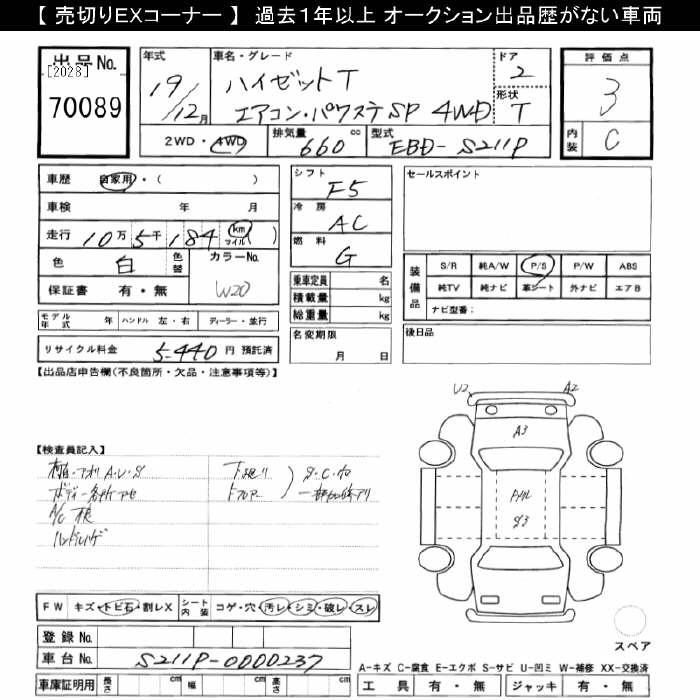 【 売切りEXコーナー 】 過去１年以上 オークション出品歴がない車両
出品No.
[2028]
70089
年式 19/12月
車名・グレード ハイゼットT
エアコン・パワステSP 4WD
ドア 2
形状 T
評価点 3
内装 C
2WD・4WD 排気量 660 cc 型式 EBD-S211P
車歴 自家用・( )
車検 年 月
走行 10万5千184 km マイル ( )
色 白 色替 カラーNo. W20
保証書 有・無
シフト F5
冷房 AC
燃料 G
乗車定員 名
積載量 kg
総重量 kg
セールスポイント
装備品 S/R 純A/W P/S P/W ABS
純TV 純ナビ 革シート 外ナビ エアB
ナビ型番：
モデル年式 年 ハンドル 左・右 ディーラー・並行
名変期限 月 日
後日品
リサイクル料金 5440 円 預託済
【出品店申告欄(不良箇所・欠品・注意事項等)】
U2 A2
A3
【検査員記入】
A・U・S 下廻り S・C・
ボディー各所
A/C
S3
FW キズ・トビ石・割レX シート内装 コゲ・穴・汚レ・シミ・破レ・スレ
登録No.
車台No. S211P-0000237
スペア
A-キズ C-腐食 E-エクボ S-サビ U-凹ミ W-補修 XX-交換済
車庫証明用 長さ cm 幅 cm 高さ cm 工具 有・無 ジャッキ 有・無